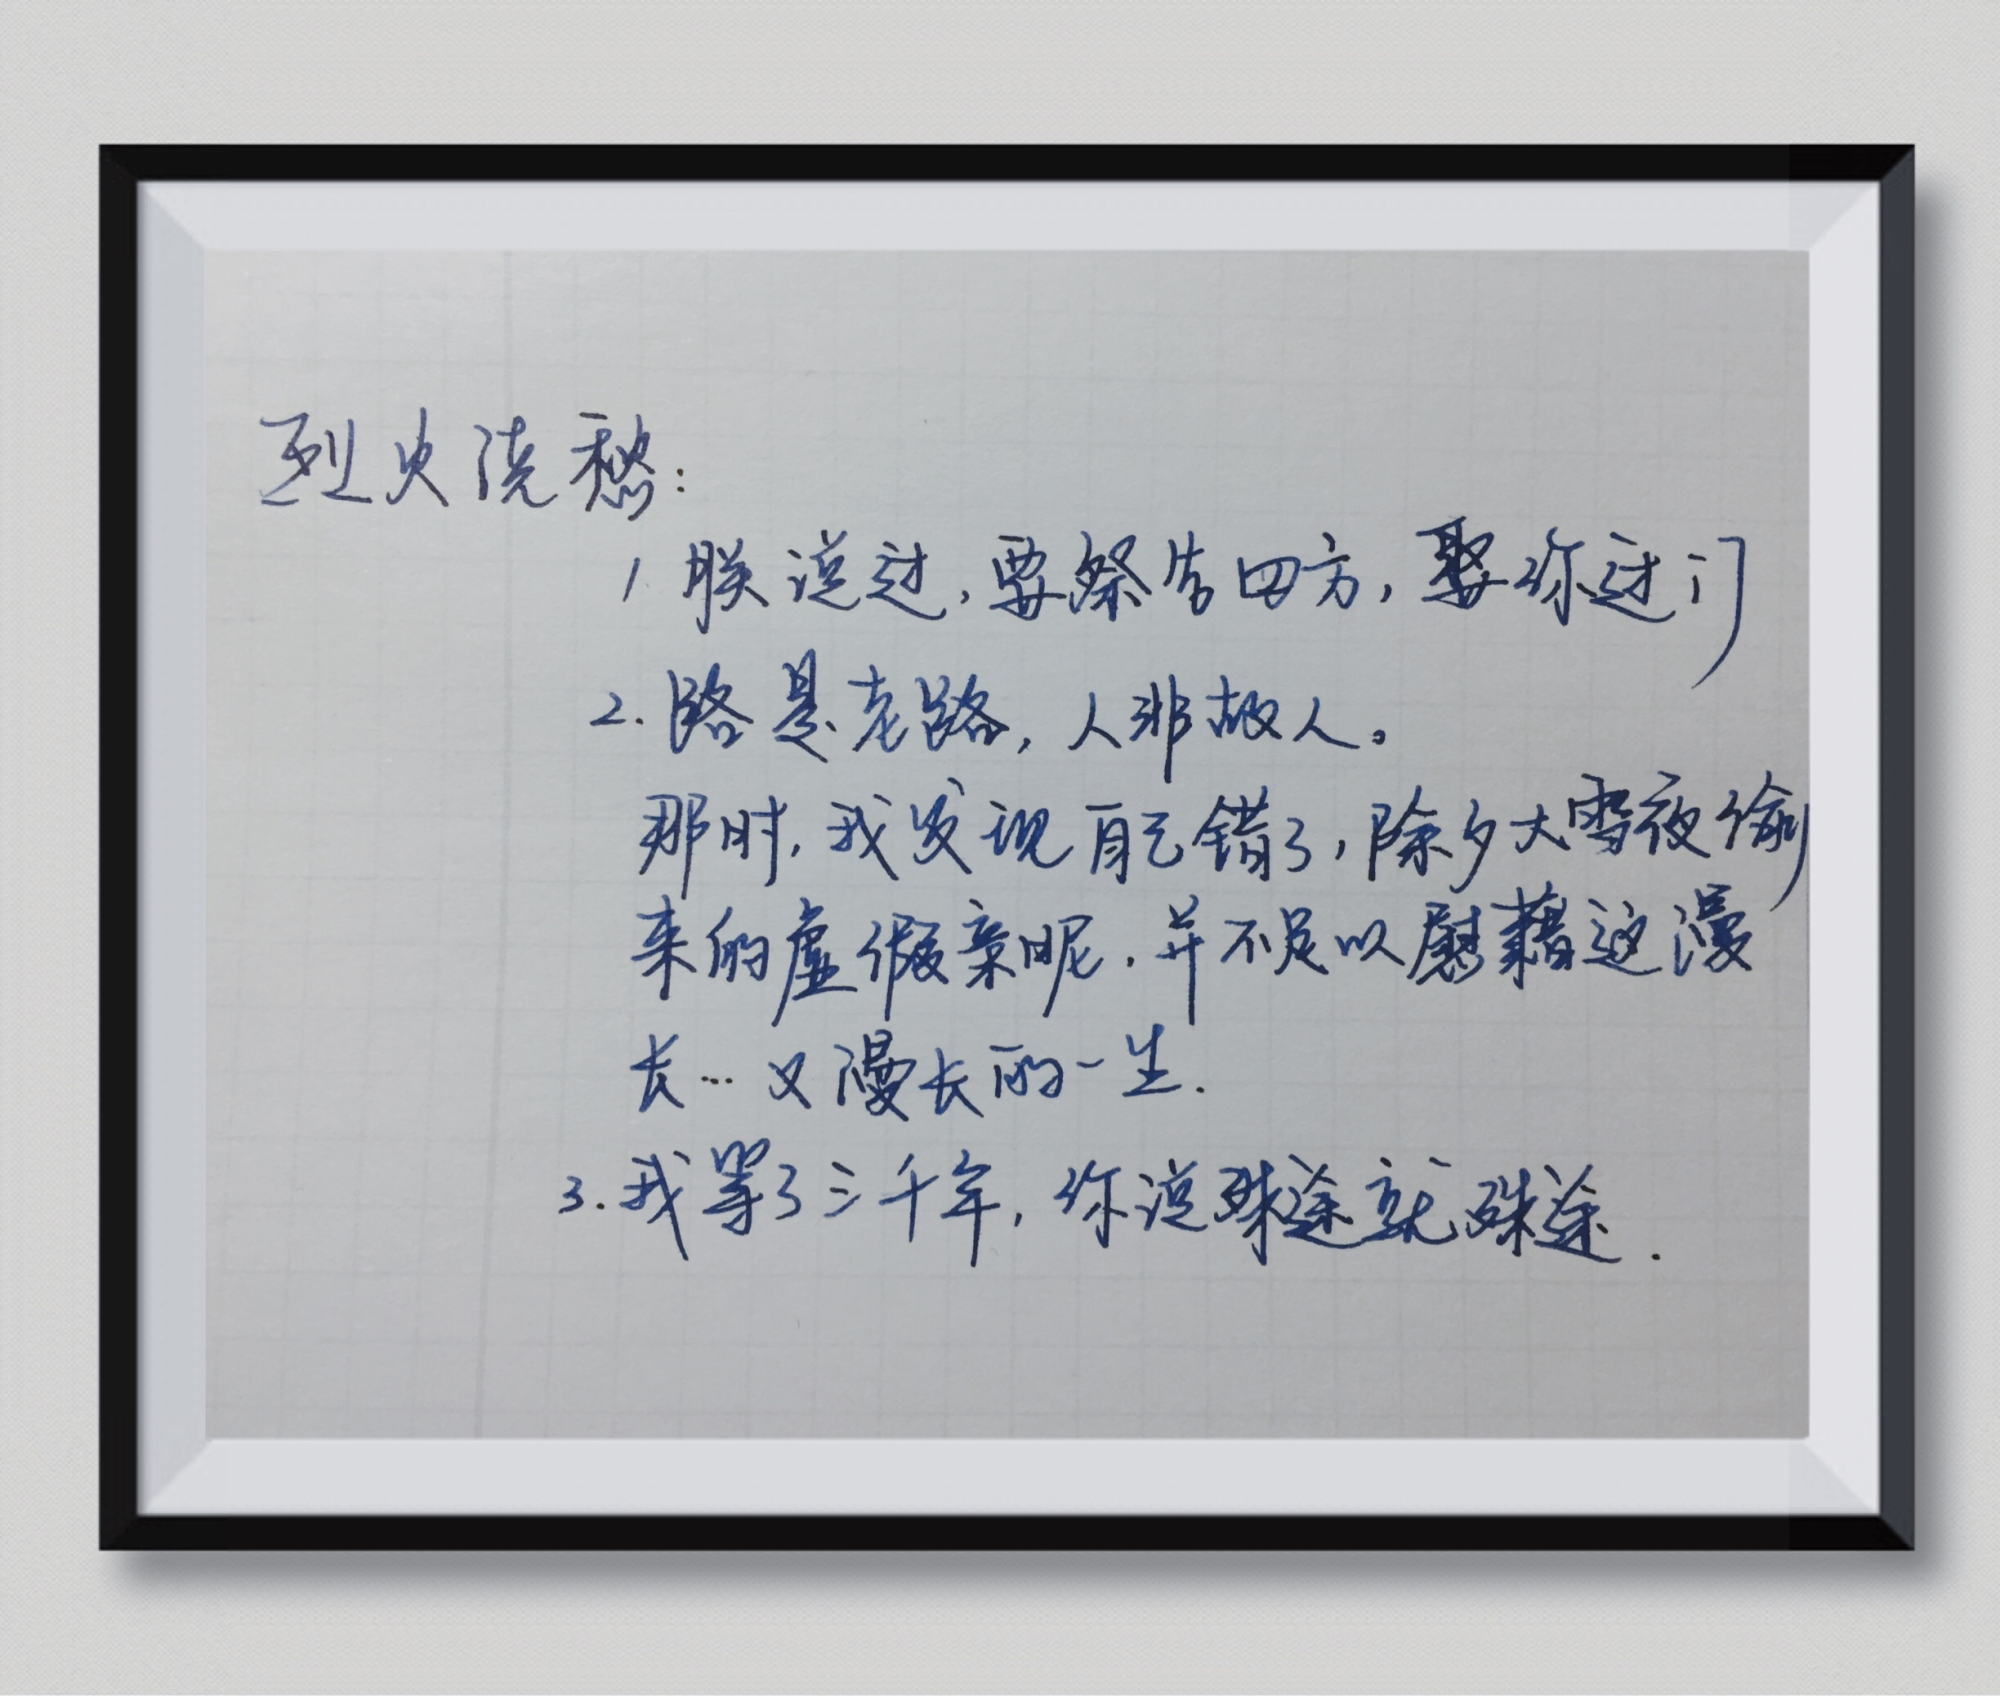 烈火浇愁:
1 朕说过,要祭告四方,娶你过门
2. 路是老路,人非故人。
那时,我发现自己错了,除夕大雪夜偷
来的虚假亲昵,并不足以慰藉这漫
长…又漫长的一生.
3. 我等了三千年,你说殊途就殊途.